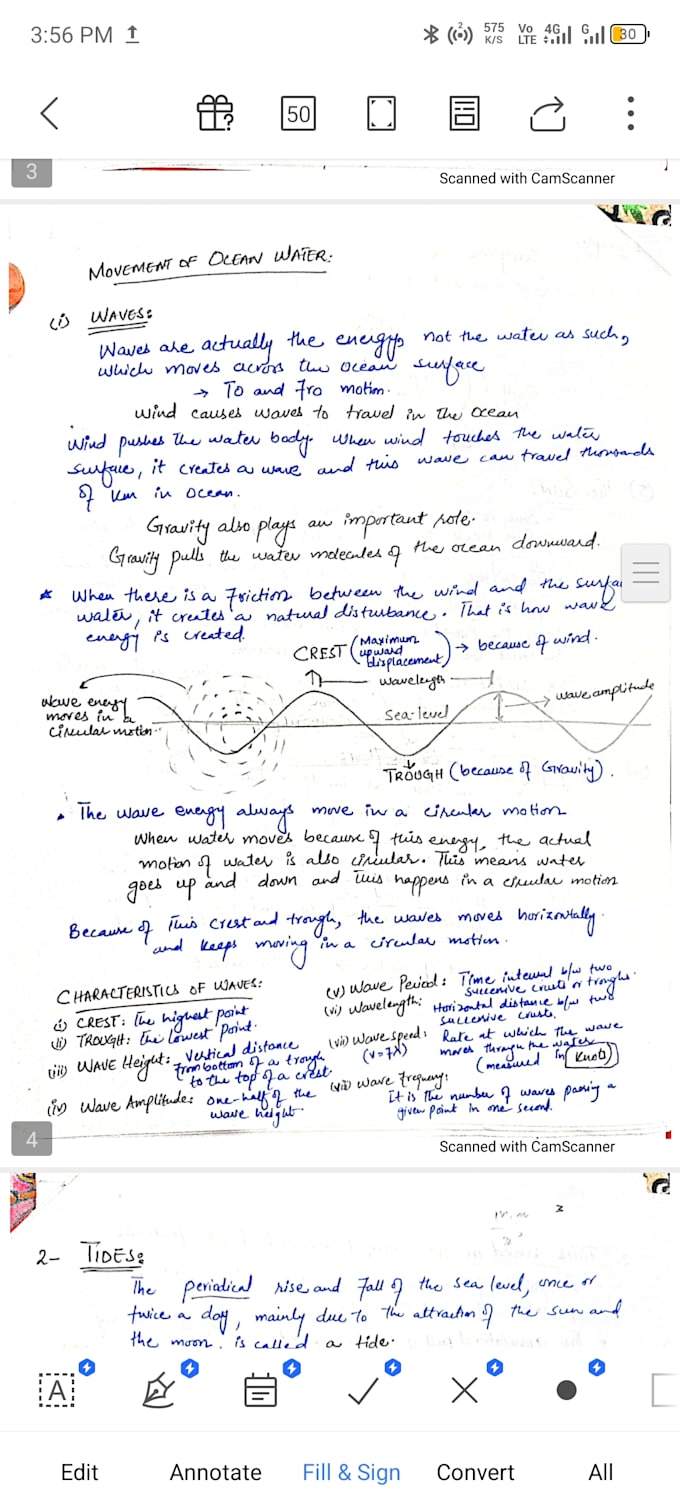 3:56 PM
575 K/S
Vo LTE
4G
G
30
50
3
Scanned with CamScanner
MOVEMENT OF OCEAN WATER:
(i) WAVES:
Waves are actually the energy, not the water as such,
which moves across the ocean surface
→ To and Fro motion.
Wind causes waves to travel in the ocean
Wind pushes the water body. When wind touches the water
surface, it creates a wave and this wave can travel thousands
of km in ocean.
Gravity also plays an important role.
Gravity pulls the water molecules of the ocean downward.
* When there is a friction between the wind and the surfa
water, it creates a natural disturbance. That is how wave
energy is created.
CREST (Maximum upward displacement) → because of wind.
wavelength
wave amplitude
Wave energy
moves in a
circular motion
Sea-level
TROUGH (because of Gravity).
• The wave energy always move in a circular motion
When water moves because of this energy, the actual
motion of water is also circular. This means water
goes up and down and this happens in a circular motion
Because of this crest and trough, the waves moves horizontally
and keeps moving in a circular motion.
CHARACTERISTICS OF WAVES:
i) CREST: The highest point
ii) TROUGH: The lowest point.
iii) WAVE Height: Vertical distance
from bottom of a trough
to the top of a crest.
(iv) Wave Amplitude: one-half of the
wave height.
(v) Wave Period: Time interval b/w two
successive crests or troughs.
(vi) Wavelength: Horizontal distance b/w two
successive crests.
(vii) Wave speed: Rate at which the wave
(v=fλ) moves through the water
(measured in Knots)
(viii) Wave frequency:
It is the number of waves passing a
given point in one second.
4
Scanned with CamScanner
2- TIDES:
The periodical rise and fall of the sea level, once or
twice a day, mainly due to the attraction of the sun and
the moon, is called a tide.
A
Edit
Annotate
Fill & Sign
Convert
All